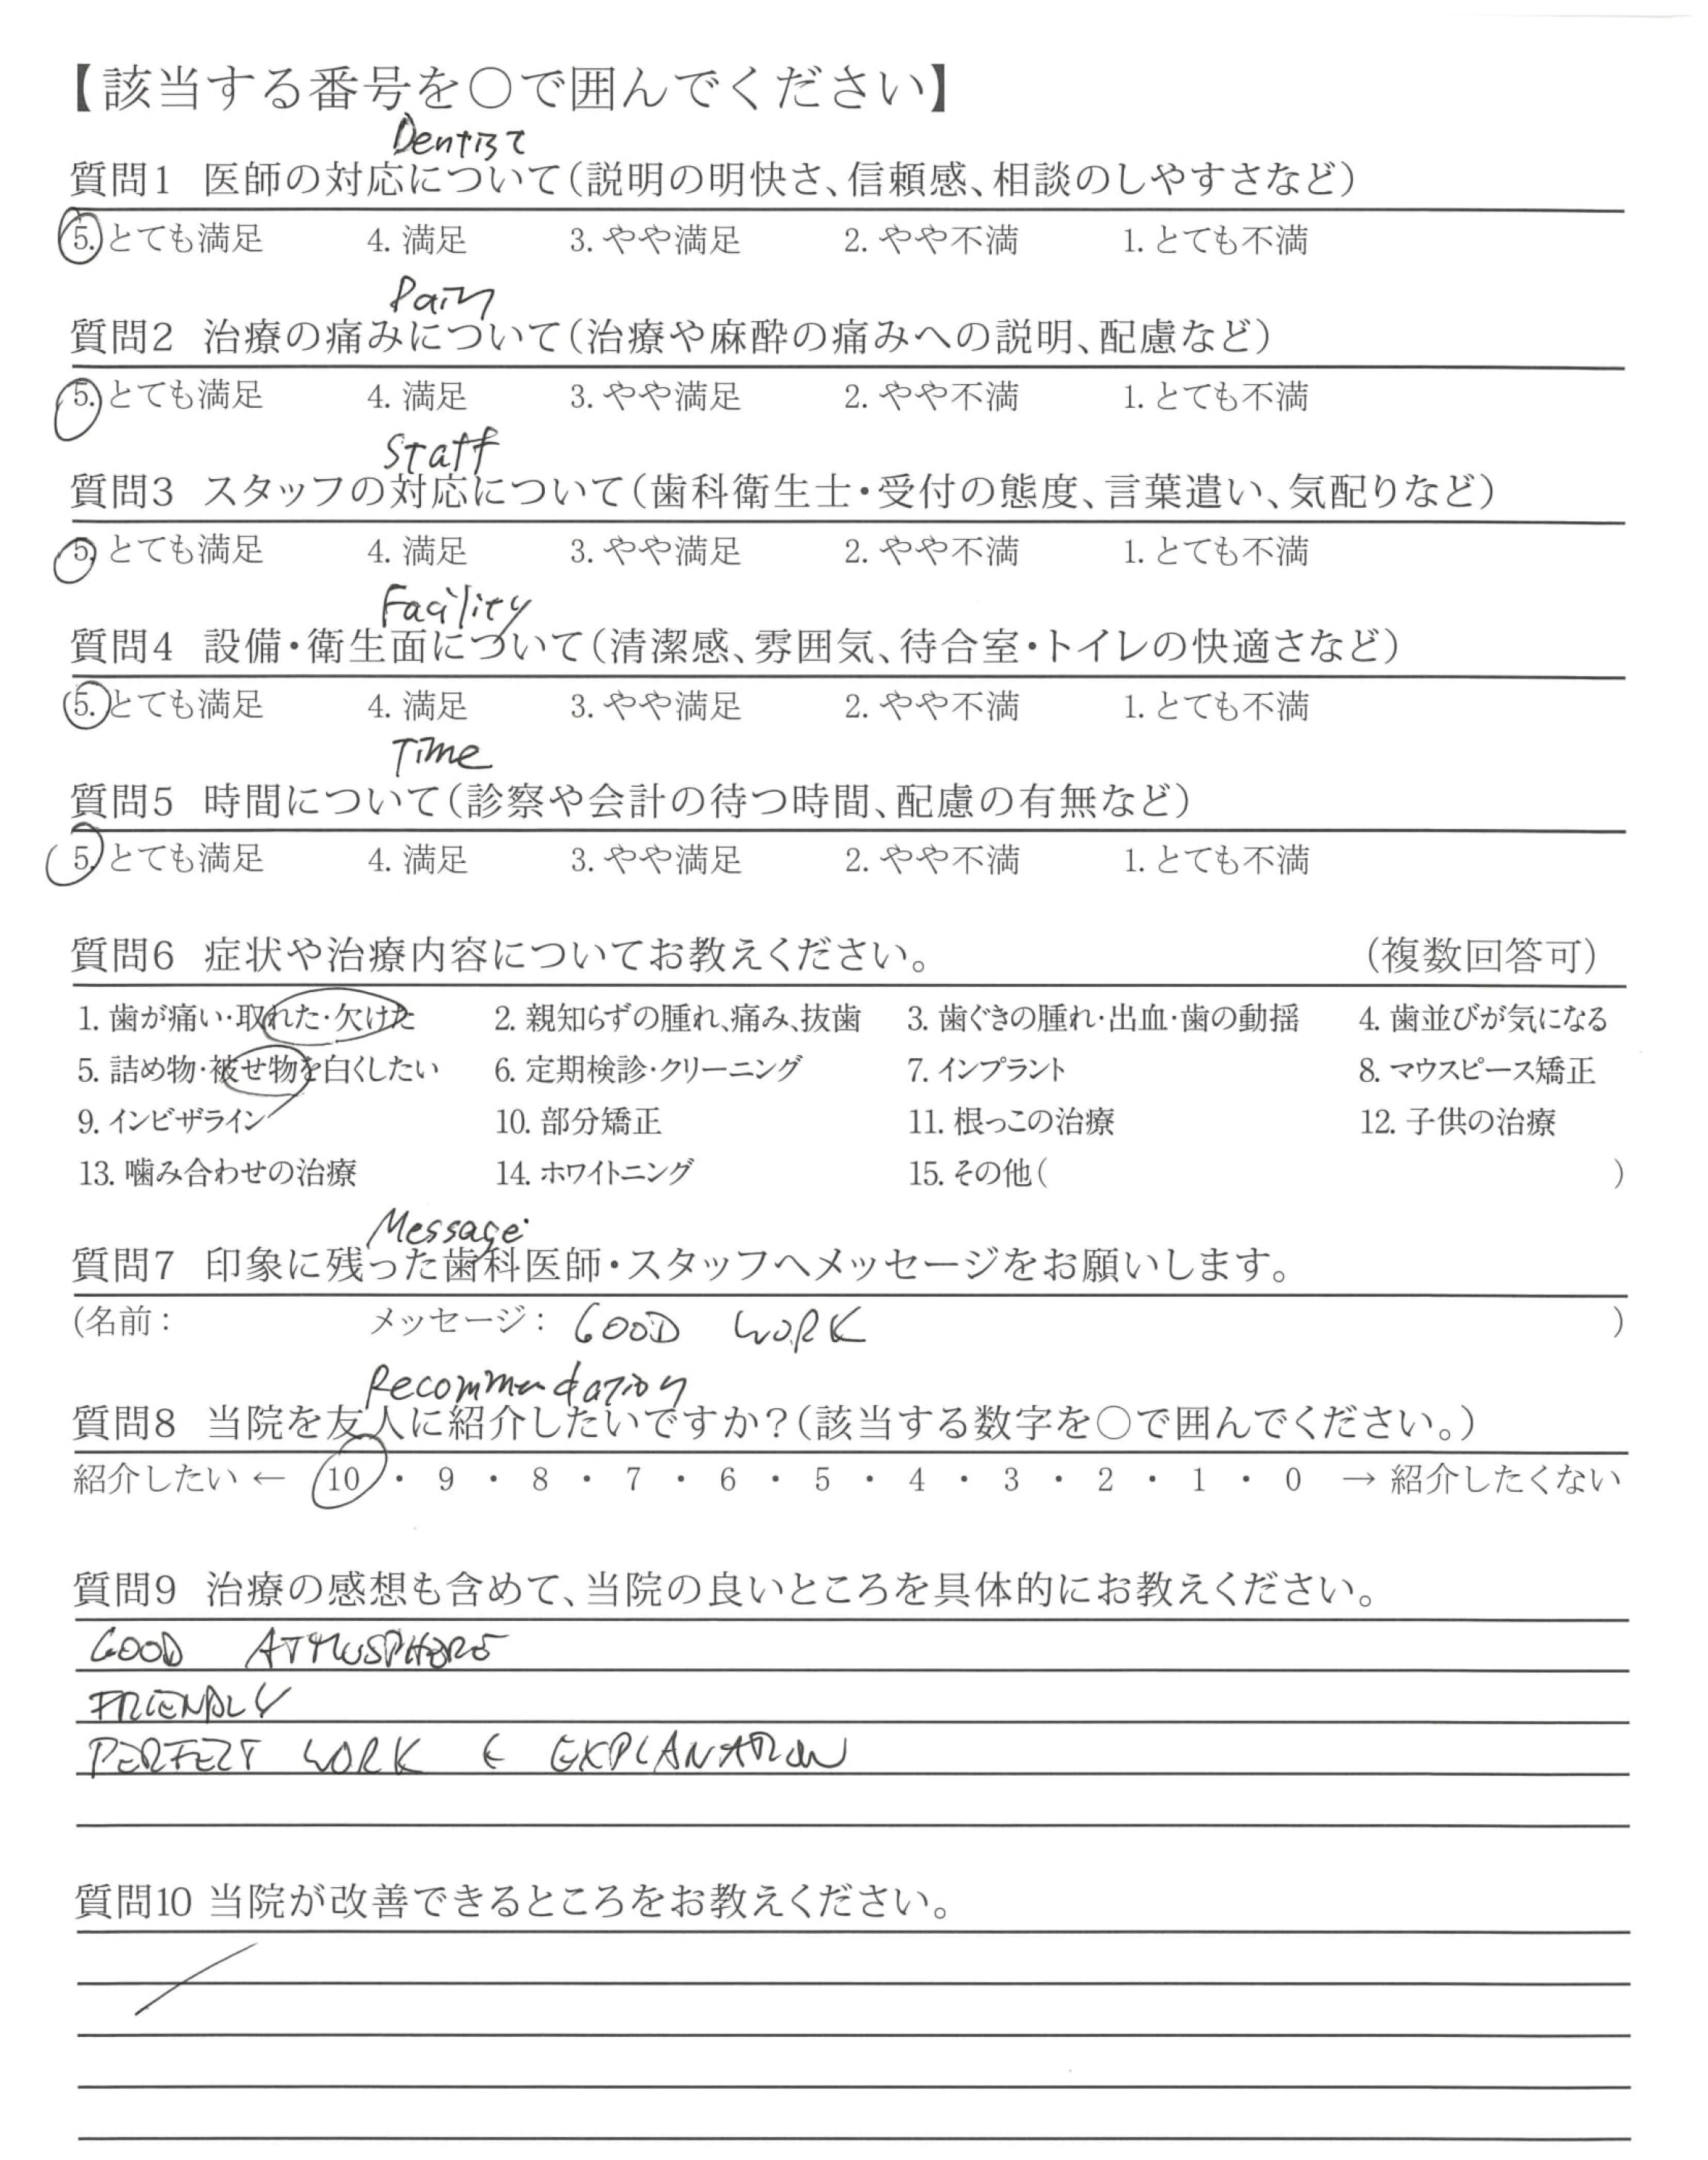 【該当する番号を○で囲んでください】
Dentist
質問1 医師の対応について(説明の明快さ、信頼感、相談のしやすさなど)
5. とても満足 4. 満足 3. やや満足 2. やや不満 1. とても不満
Pain
質問2 治療の痛みについて(治療や麻酔の痛みへの説明、配慮など)
5. とても満足 4. 満足 3. やや満足 2. やや不満 1. とても不満
Staff
質問3 スタッフの対応について(歯科衛生士・受付の態度、言葉遣い、気配りなど)
5. とても満足 4. 満足 3. やや満足 2. やや不満 1. とても不満
Facility
質問4 設備・衛生面について(清潔感、雰囲気、待合室・トイレの快適さなど)
5. とても満足 4. 満足 3. やや満足 2. やや不満 1. とても不満
Time
質問5 時間について(診察や会計の待つ時間、配慮の有無など)
5. とても満足 4. 満足 3. やや満足 2. やや不満 1. とても不満
質問6 症状や治療内容についてお教えください。 (複数回答可)
1. 歯が痛い・取れた・欠けた 2. 親知らずの腫れ、痛み、抜歯 3. 歯ぐきの腫れ・出血・歯の動揺 4. 歯並びが気になる
5. 詰め物・被せ物を白くしたい 6. 定期検診・クリーニング 7. インプラント 8. マウスピース矯正
9. インビザライン 10. 部分矯正 11. 根っこの治療 12. 子供の治療
13. 噛み合わせの治療 14. ホワイトニング 15. その他( )
Message
質問7 印象に残った歯科医師・スタッフへメッセージをお願いします。
(名前: メッセージ: GOOD WORK )
Recommendation
質問8 当院を友人に紹介したいですか?(該当する数字を○で囲んでください。)
紹介したい ← 10 ・ 9 ・ 8 ・ 7 ・ 6 ・ 5 ・ 4 ・ 3 ・ 2 ・ 1 ・ 0 → 紹介したくない
質問9 治療の感想も含めて、当院の良いところを具体的にお教えください。
GOOD ATMOSPHERE
FRIENDLY
PERFECT WORK & EXPLANATION
質問10 当院が改善できるところをお教えください。